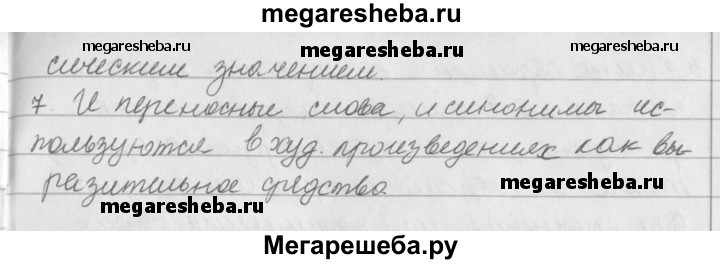 megaresheba.ru
megaresheba.ru megaresheba.ru megaresheba.ru
сическим значением.
7. И переносные слова, и синонимы ис-
пользуются в худ. произведениях как вы-
разительное средство.
megaresheba.ru megaresheba.ru
Мегарешеба.ру